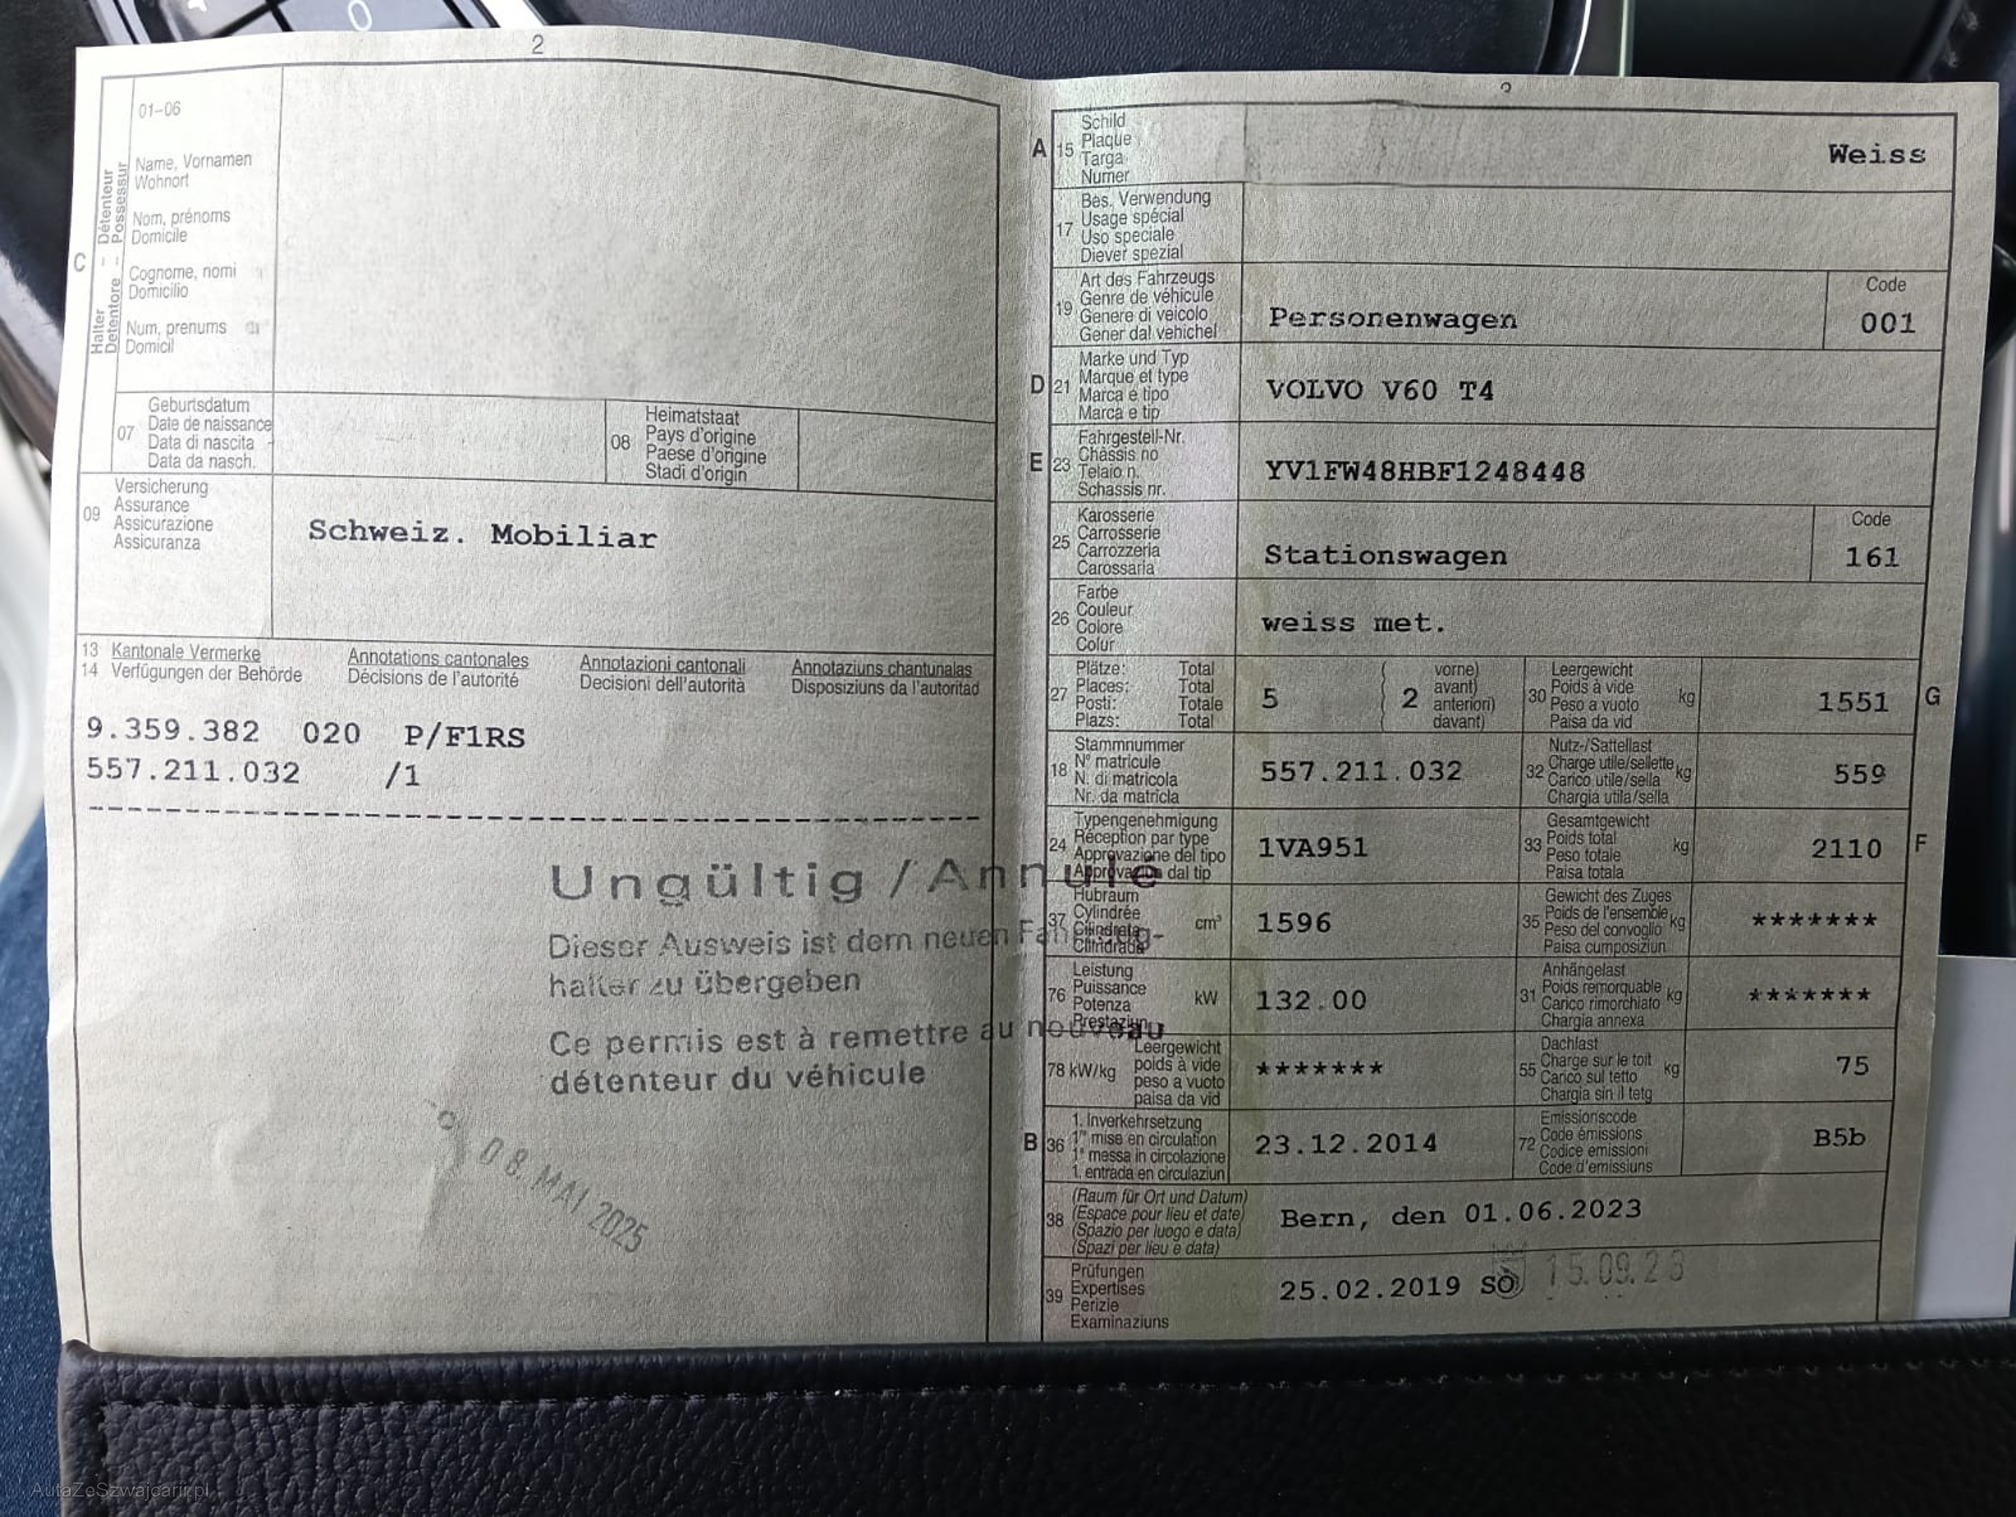 2
01-06
Halter - Détenteur
Detentore - Possessur
C
Name, Vornamen
Wohnort
Nom, prénoms
Domicile
Cognome, nomi
Domicilio
Num, prenums
Domicil
07
Geburtsdatum
Date de naissance
Data di nascita
Data da nasch.
08
Heimatstaat
Pays d'origine
Paese d'origine
Stadi d'origin
09
Versicherung
Assurance
Assicurazione
Assicuranza
Schweiz. Mobiliar
13 Kantonale Vermerke Annotations cantonales Annotazioni cantonali Annotaziuns chantunalas
14 Verfügungen der Behörde Décisions de l'autorité Decisioni dell'autorità Disposiziuns da l'autoritad
9.359.382 020 P/F1RS
557.211.032 /1
Ungültig / Annulé
Dieser Ausweis ist dem neuen Fahrzeug-
halter zu übergeben
Ce permis est à remettre au nouveau
détenteur du véhicule
08. MAI 2025
A 15
Schild
Plaque
Targa
Numer
Weiss
17
Bes. Verwendung
Usage spécial
Uso speciale
Diever spezial
19
Art des Fahrzeugs
Genre de véhicule
Genere di veicolo
Gener dal vehichel
Personenwagen
Code
001
D 21
Marke und Typ
Marque et type
Marca e tipo
Marca e tip
VOLVO V60 T4
E 23
Fahrgestell-Nr.
Châssis no
Telaio n.
Schassis nr.
YV1FW48HBF1248448
25
Karosserie
Carrosserie
Carrozzeria
Carossaria
Stationswagen
Code
161
26
Farbe
Couleur
Colore
Colur
weiss met.
27
Plätze: Total
Places: Total
Posti: Totale
Plazs: Total
5
( 2 vorne)
avant)
anteriori)
davant)
30
Leergewicht
Poids à vide
Peso a vuoto
Paisa da vid
kg
1551
G
18
Stammnummer
N° matricule
N. di matricola
Nr. da matricla
557.211.032
32
Nutz-/Sattellast
Charge utile/sellette
Carico utile/sella
Chargia utila/sella
kg
559
24
Typengenehmigung
Réception par type
Approvazione del tipo
Approvaziun dal tip
1VA951
33
Gesamtgewicht
Poids total
Peso totale
Paisa totala
kg
2110
F
37
Hubraum
Cylindrée
Cilindrata
Cilindrada
cm³
1596
35
Gewicht des Zuges
Poids de l'ensemble
Peso del convoglio
Paisa cumposiziun
kg
*******
76
Leistung
Puissance
Potenza
Prestaziun
kW
132.00
31
Anhängelast
Poids remorquable
Carico rimorchiato
Chargia annexa
kg
*******
78 kW/kg
Leergewicht
poids à vide
peso a vuoto
paisa da vid
*******
55
Dachlast
Charge sur le toit
Carico sul tetto
Chargia sin il tetg
kg
75
B 36
1. Inverkehrsetzung
1re mise en circulation
1a messa in circolazione
1. entrada en circulaziun
23.12.2014
72
Emissionscode
Code émissions
Codice emissioni
Code d'emissiuns
B5b
38
(Raum für Ort und Datum)
(Espace pour lieu et date)
(Spazio per luogo e data)
(Spazi per lieu e data)
Bern, den 01.06.2023
39
Prüfungen
Expertises
Perizie
Examinaziuns
25.02.2019 SO
15.09.23
AutaZeSzwajcarii.pl